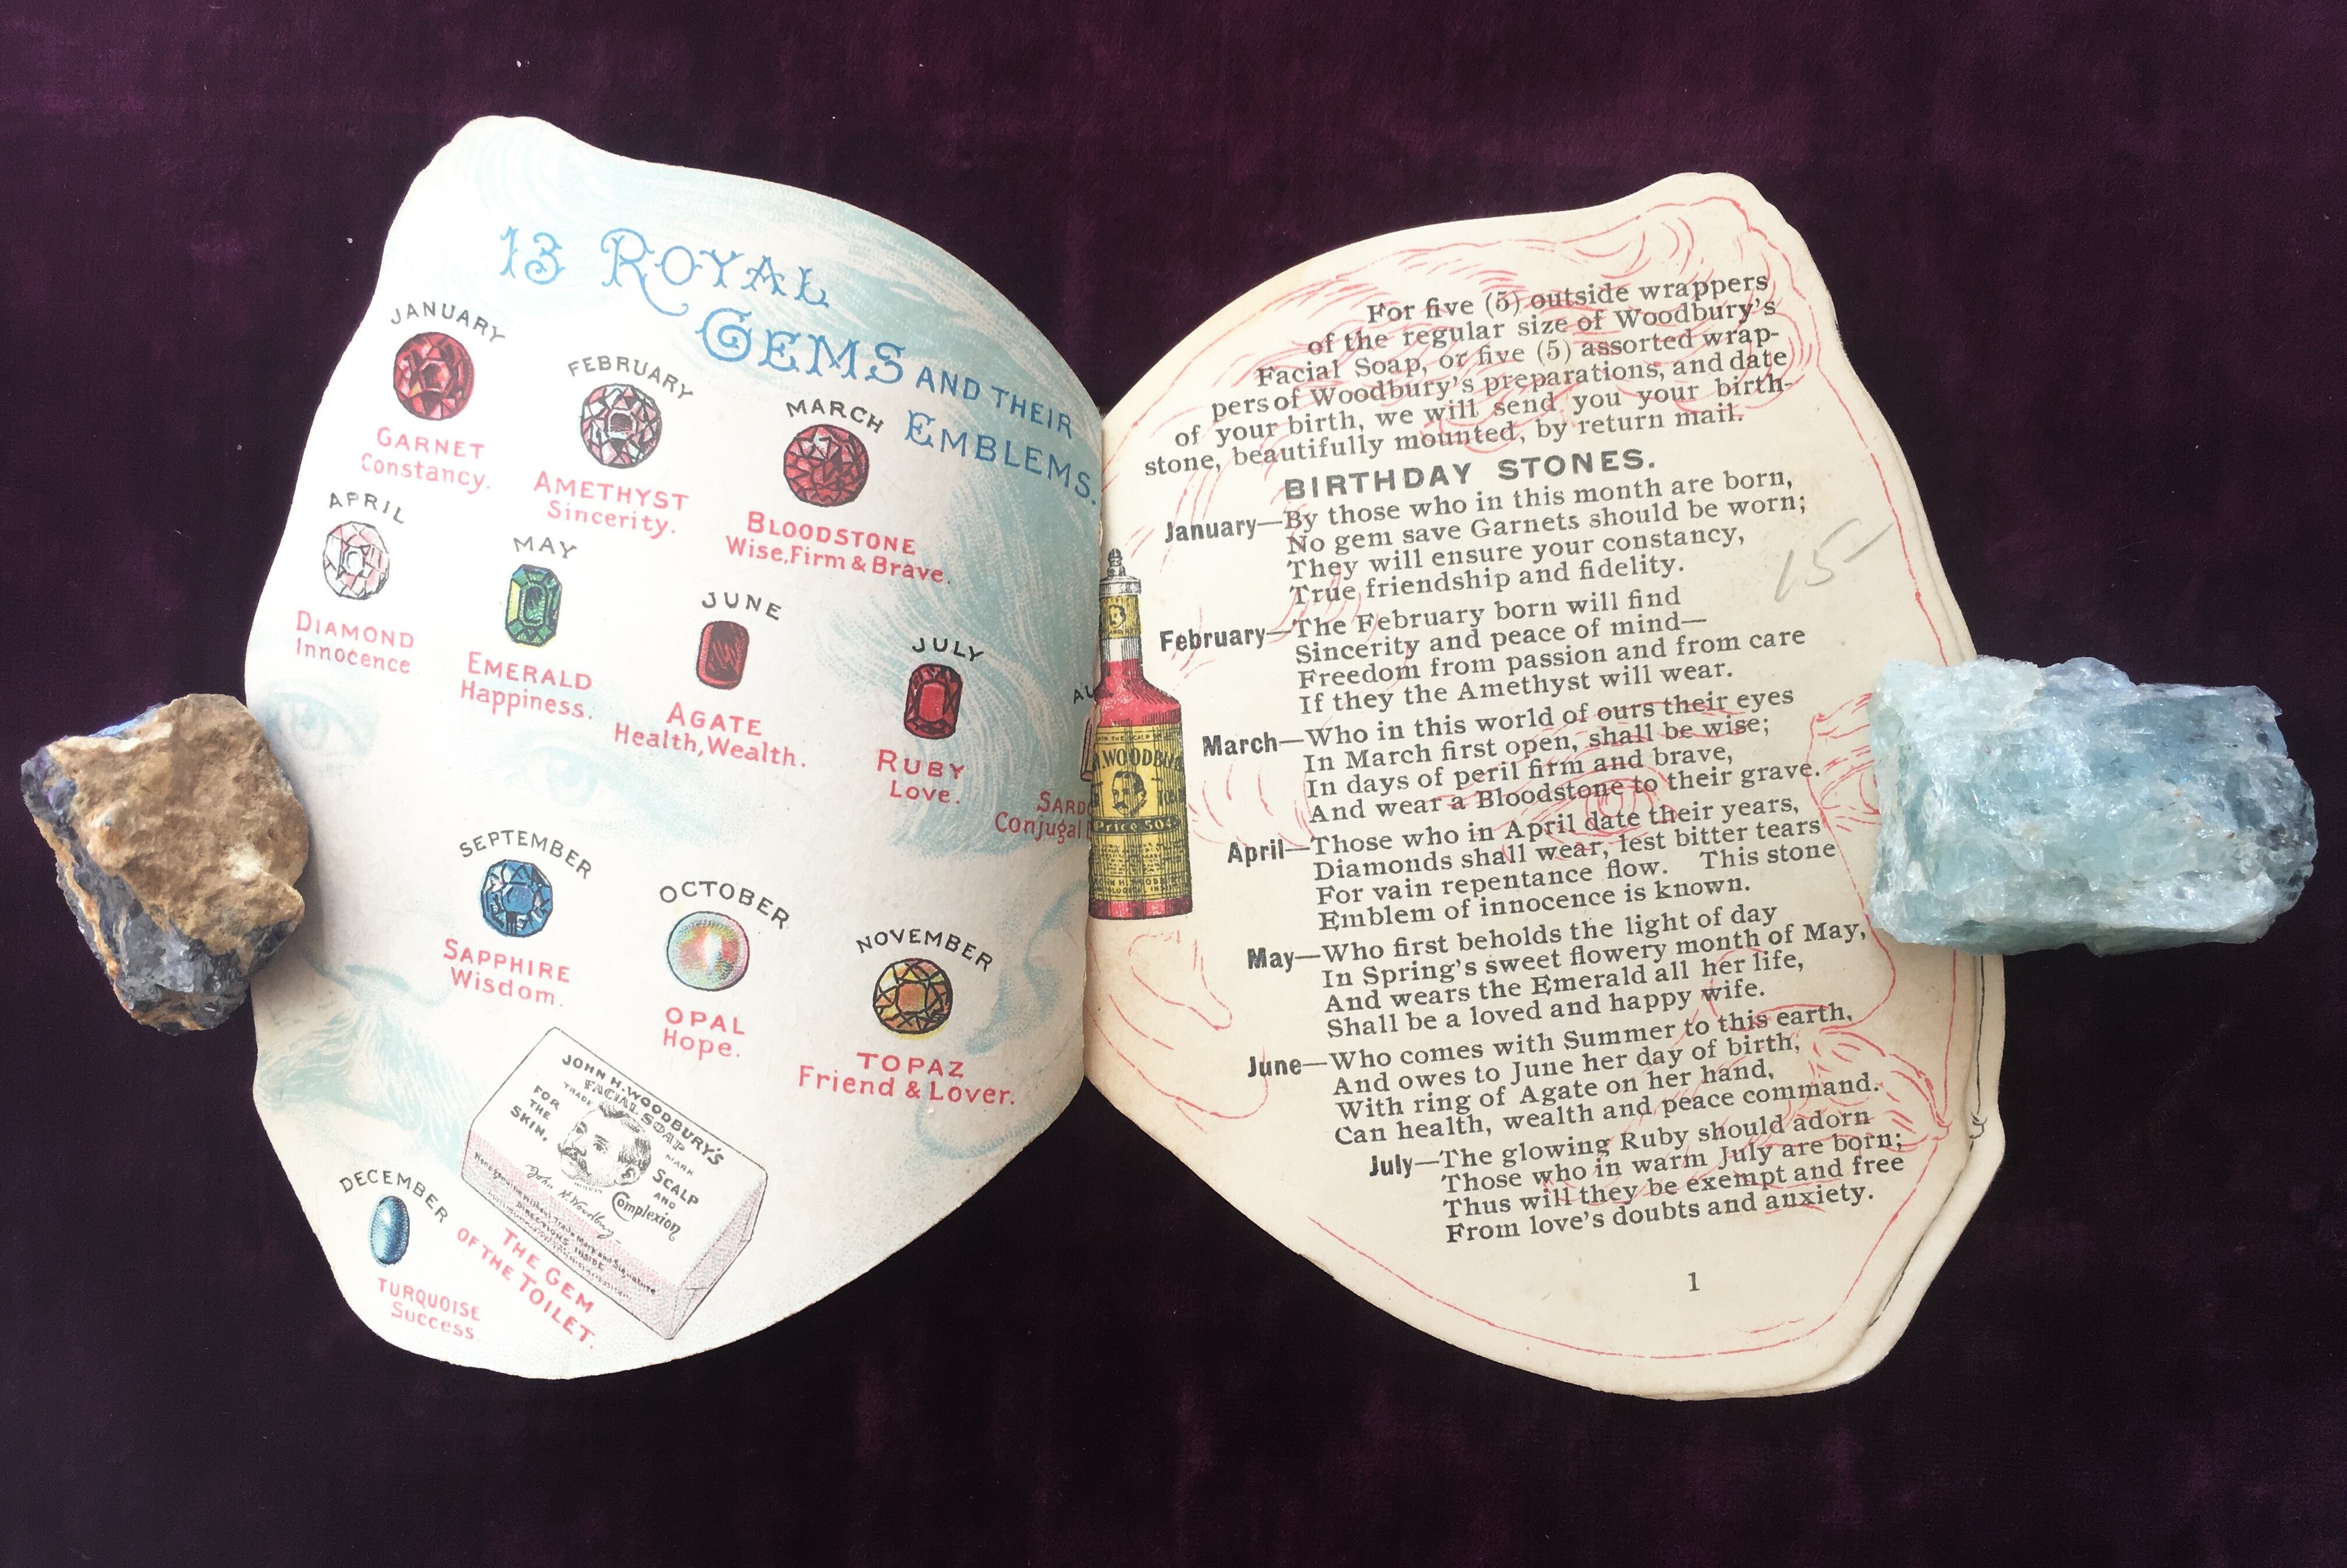 13 ROYAL
GEMS AND THEIR
EMBLEMS.
JANUARY
GARNET
Constancy.
FEBRUARY
AMETHYST
Sincerity.
MARCH
BLOODSTONE
Wise, Firm & Brave.
APRIL
DIAMOND
Innocence.
MAY
EMERALD
Happiness.
JUNE
AGATE
Health, Wealth.
JULY
RUBY
Love.
AU
SARDO
Conjugal
SEPTEMBER
SAPPHIRE
Wisdom.
OCTOBER
OPAL
Hope.
NOVEMBER
TOPAZ
Friend & Lover.
JOHN H. WOODBURY'S
FACIAL SOAP
TRADE MARK
FOR
THE
SKIN,
SCALP
AND
Complexion
John H. Woodbury
None genuine without Trade Mark and Signature
DIRECTIONS INSIDE
DECEMBER
TURQUOISE
Success.
THE GEM
OF THE TOILET.
WOODBU
Price 50¢
For five (5) outside wrappers
of the regular size of Woodbury's
Facial Soap, or five (5) assorted wrap-
pers of Woodbury's preparations, and date
of your birth, we will send you your birth-
stone, beautifully mounted, by return mail.
BIRTHDAY STONES.
January—By those who in this month are born,
No gem save Garnets should be worn;
They will ensure your constancy,
True friendship and fidelity.
February—The February born will find
Sincerity and peace of mind—
Freedom from passion and from care
If they the Amethyst will wear.
March—Who in this world of ours their eyes
In March first open, shall be wise;
In days of peril firm and brave,
And wear a Bloodstone to their grave.
April—Those who in April date their years,
Diamonds shall wear, lest bitter tears
For vain repentance flow. This stone
Emblem of innocence is known.
May—Who first beholds the light of day
In Spring's sweet flowery month of May,
And wears the Emerald all her life,
Shall be a loved and happy wife.
June—Who comes with Summer to this earth,
And owes to June her day of birth,
With ring of Agate on her hand,
Can health, wealth and peace command.
July—The glowing Ruby should adorn
Those who in warm July are born;
Thus will they be exempt and free
From love's doubts and anxiety.
15-
1